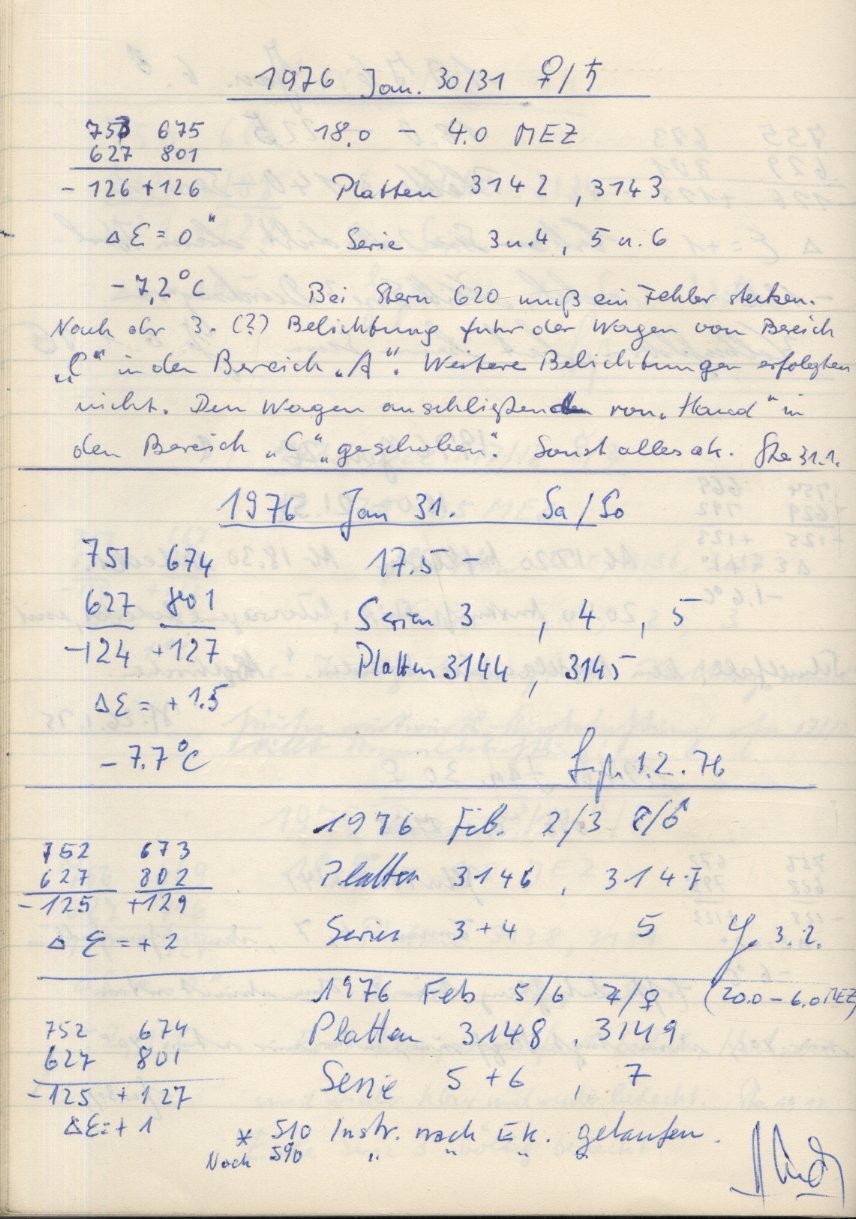 1976 Jan. 30/31 ♀/♄
753 675 18.0 – 4.0 MEZ
627 801
-126 +126 Platten 3142, 3143
ΔE = 0" Serie 3 u. 4, 5 u. 6
-7,2°C Bei Stern 620 muß ein Fehler stecken.
Nach der 3. (?) Belichtung fuhr der Wagen von Bereich
„C" in den Bereich „A". Weitere Belichtungen erfolgten
nicht. Den Wagen anschließend von „Hand" in
den Bereich „C" „geschoben". Sonst alles ok. 31.1.
1976 Jan 31. Sa/So
751 674 17.5 –
627 801 Serien 3, 4, 5
-124 +127 Platten 3144, 3145
ΔE = +1.5
-7.7°C 1.2.76
1976 Feb. 2/3
752 673
627 802 Platten 3146, 3147
-125 +129
ΔE = +2 Serien 3+4 5 3.2.
1976 Feb 5/6 (20.0 – 6.0 MEZ
752 674 Platten 3148, 3149
627 801
-125 +127 Serie 5+6, 7
ΔE = +1
* 510 Instr. nach EK. gelaufen.
Nach 590 " " " "